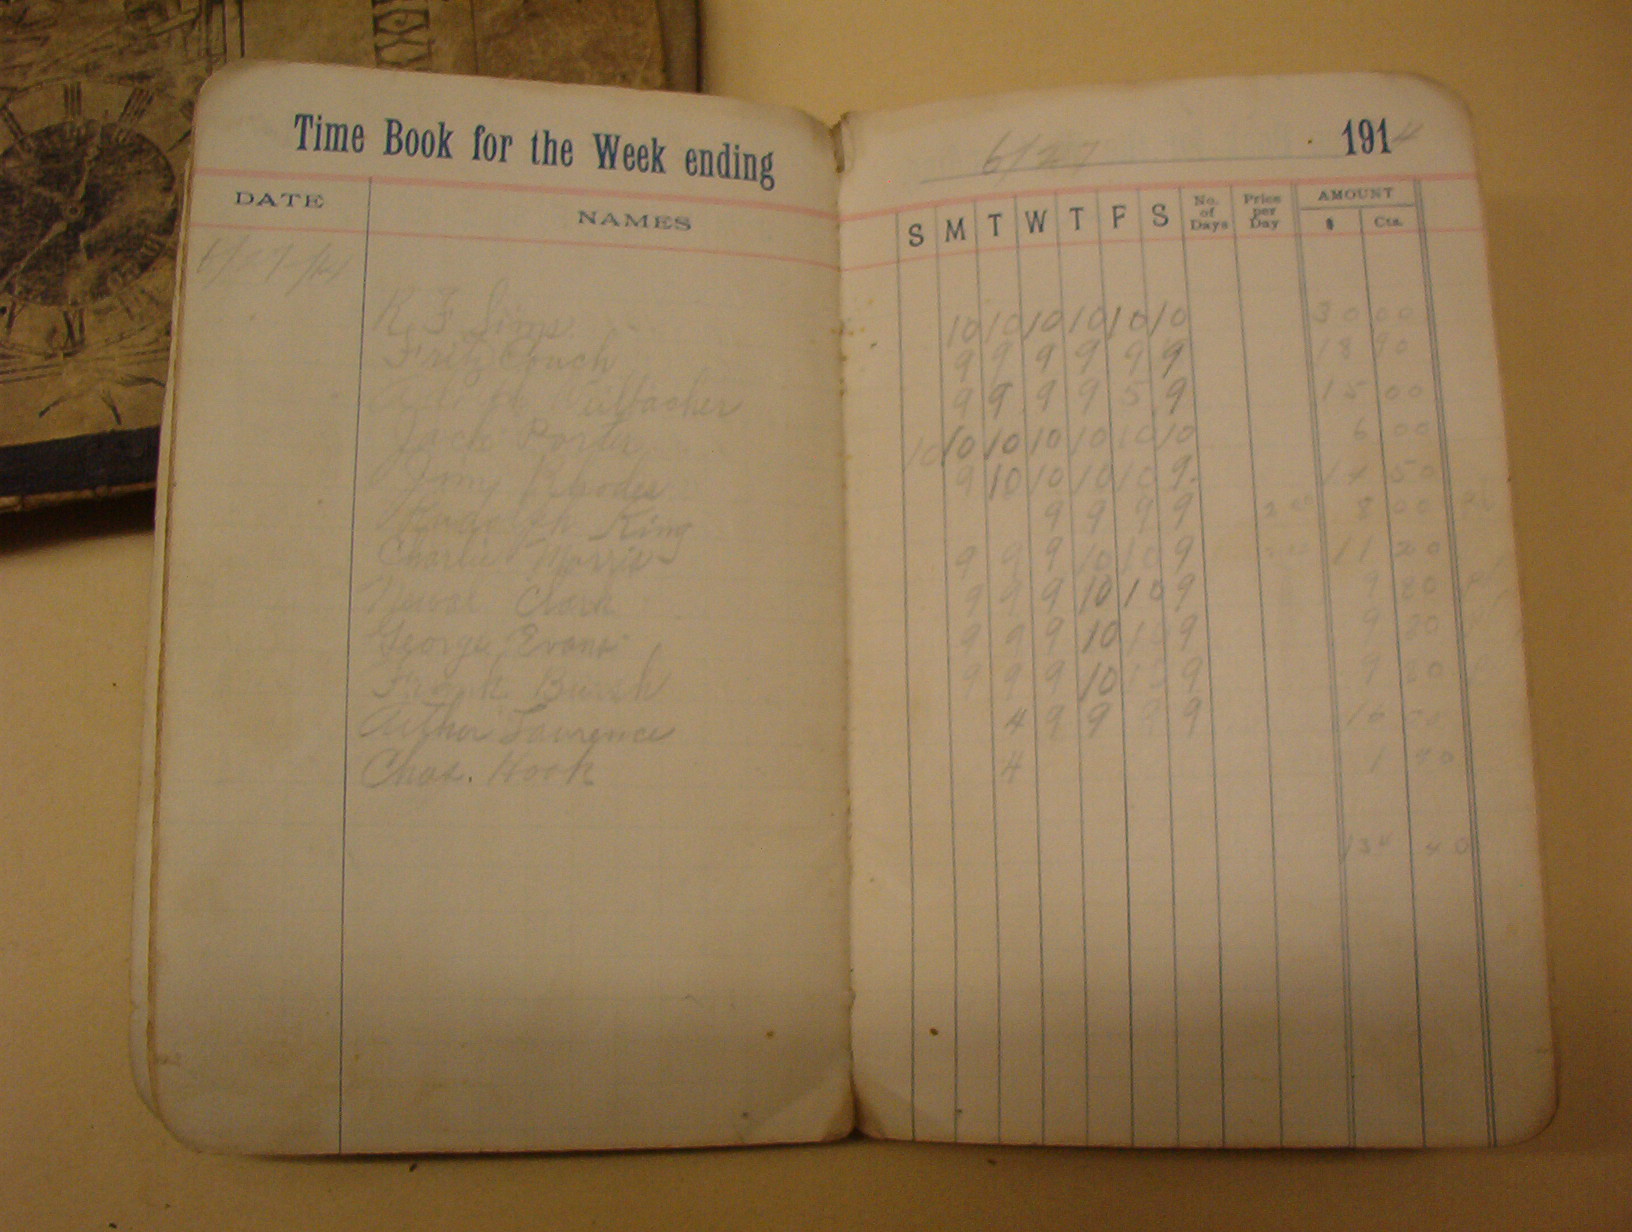 Time Book for the Week ending 6/27 1914
DATE NAMES S M T W T F S No. of Days Price per Day AMOUNT $ Cts.
6/27/14
R. F. Sims 10 10 10 10 10 10 30 00
Fritz Couch 9 9 9 9 9 9 18 90
9 9 9 9 5 9 15 00
Jack Porter 10 10 10 10 10 10 10 6 00
Jimy Rhodes 9 10 10 10 10 9 50
Rudolph King 9 9 9 9 8 00
Charlie Morris 9 9 9 10 10 9 11 20
Clark 9 9 9 10 10 9 9 80
George Evans 9 9 9 10 10 9 9 80
Frank Burch 9 9 9 10 10 9 9 80
Arthur Lawrence 4 9 9 9 9
Chas. Hook 4 1
134 40